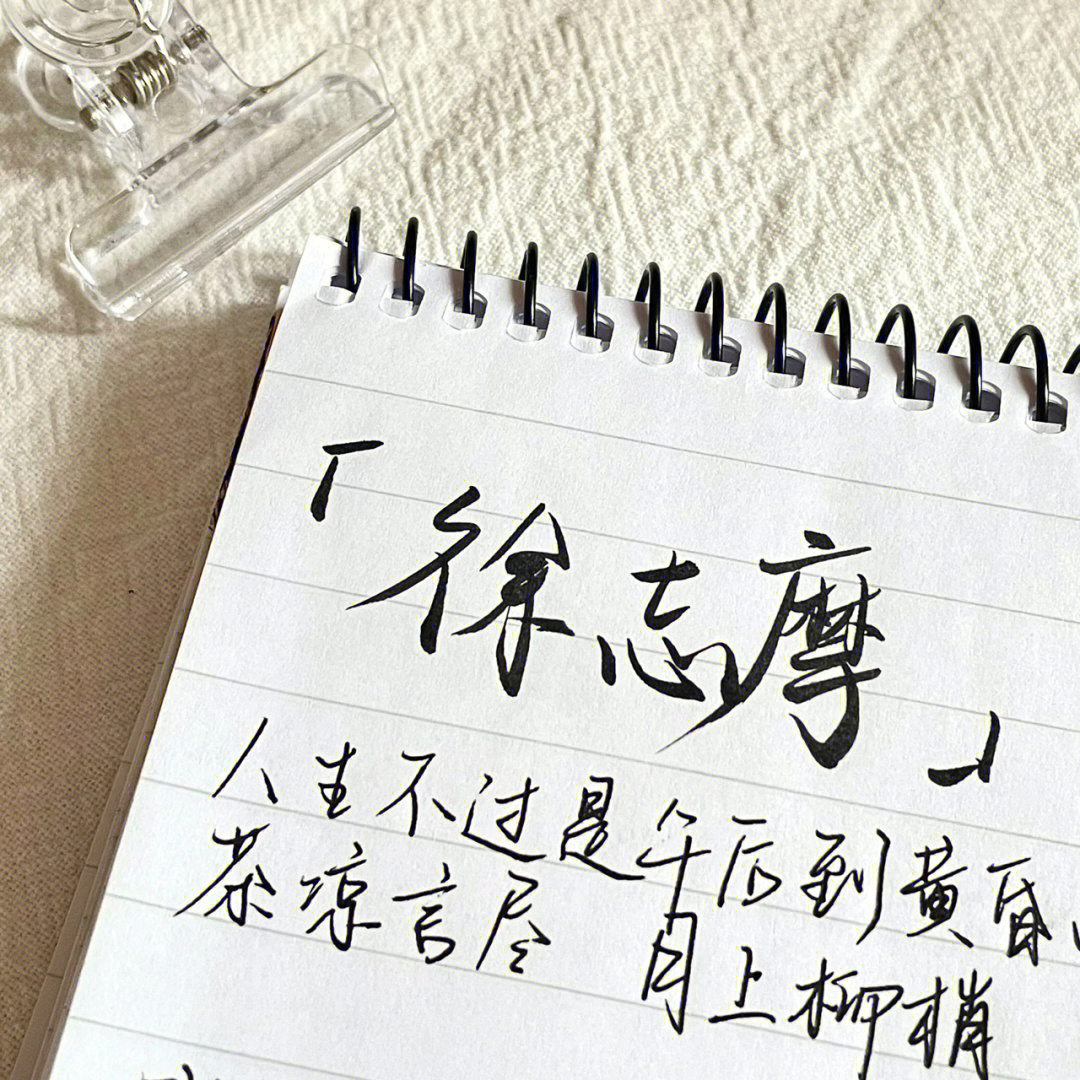 「徐志摩」
人生不过是午后到黄昏
茶凉言尽 月上柳梢